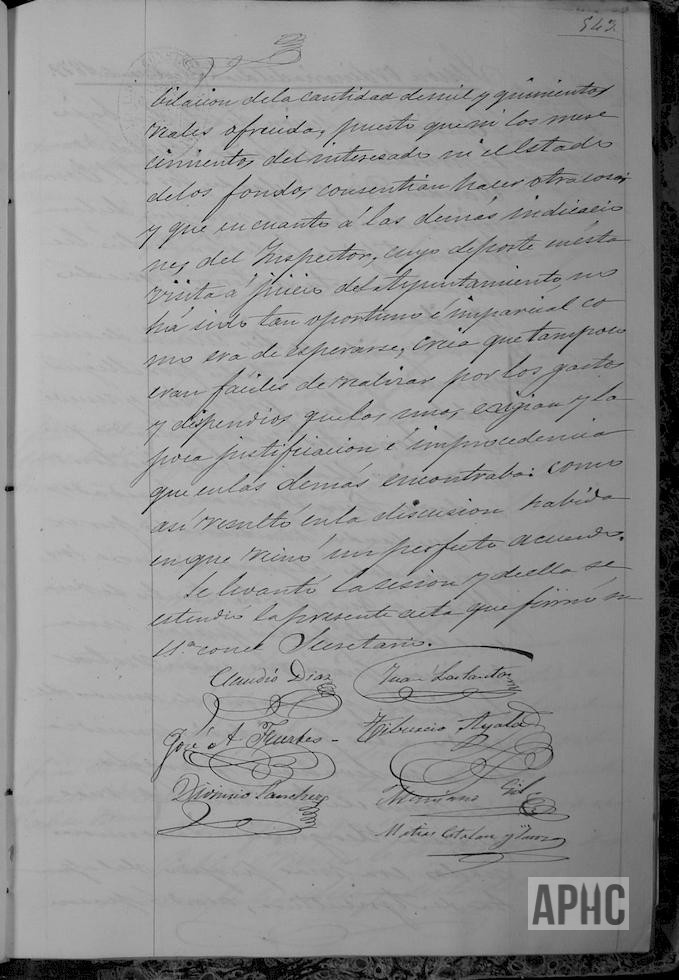 543.
bilacion de la cantidad de mil y quinientos
reales ofrecida, puesto que ni los mere
cimientos del interesado ni el Estado
de los fondos consentian hacer otra cosa;
y que en cuanto á las demás indicacio
nes del Inspector, cuyo deporte en esta
visita á juicio del Ayuntamiento, no
há sido tan oportuno é imparcial co
mo era de esperarse, creia que tampoco
eran fáciles de realizar por los gastos
y dispendios que las unas exigian y la
poca justificacion é improcedencia
que en las demás encontraba: como
asi resultó en la discusion habida
en que reinó un perfecto acuerdo.
Se levantó la sesion y de ella se
estendió la presente acta que firmó su
Sª con el Secretario.
Claudio Diaz Juan Lastantos
José A Fuertes Tiburcio Ayala
Dionisio Sanchez Mariano Gil
Matias Catalan y
APHC